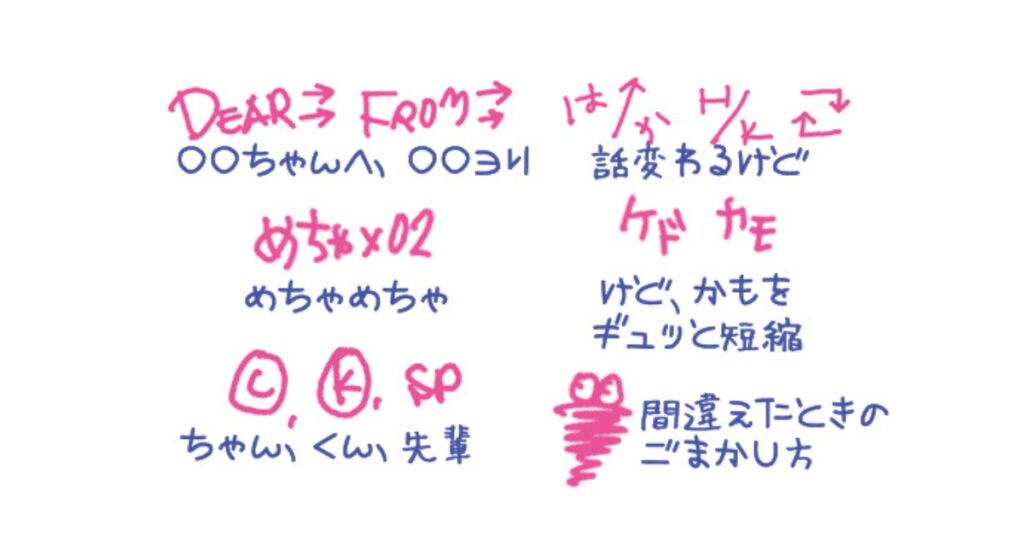 DEAR→→ FROM→→
〇〇ちゃんへ、〇〇ヨリ
めちゃ×02
めちゃめちゃ
Ⓒ, Ⓚ, SP
ちゃん、くん、先輩
は/か H/K
話変わるけど
ケド カモ
けど、かもを
ギュッと短縮
間違えたときの
ごまかし方